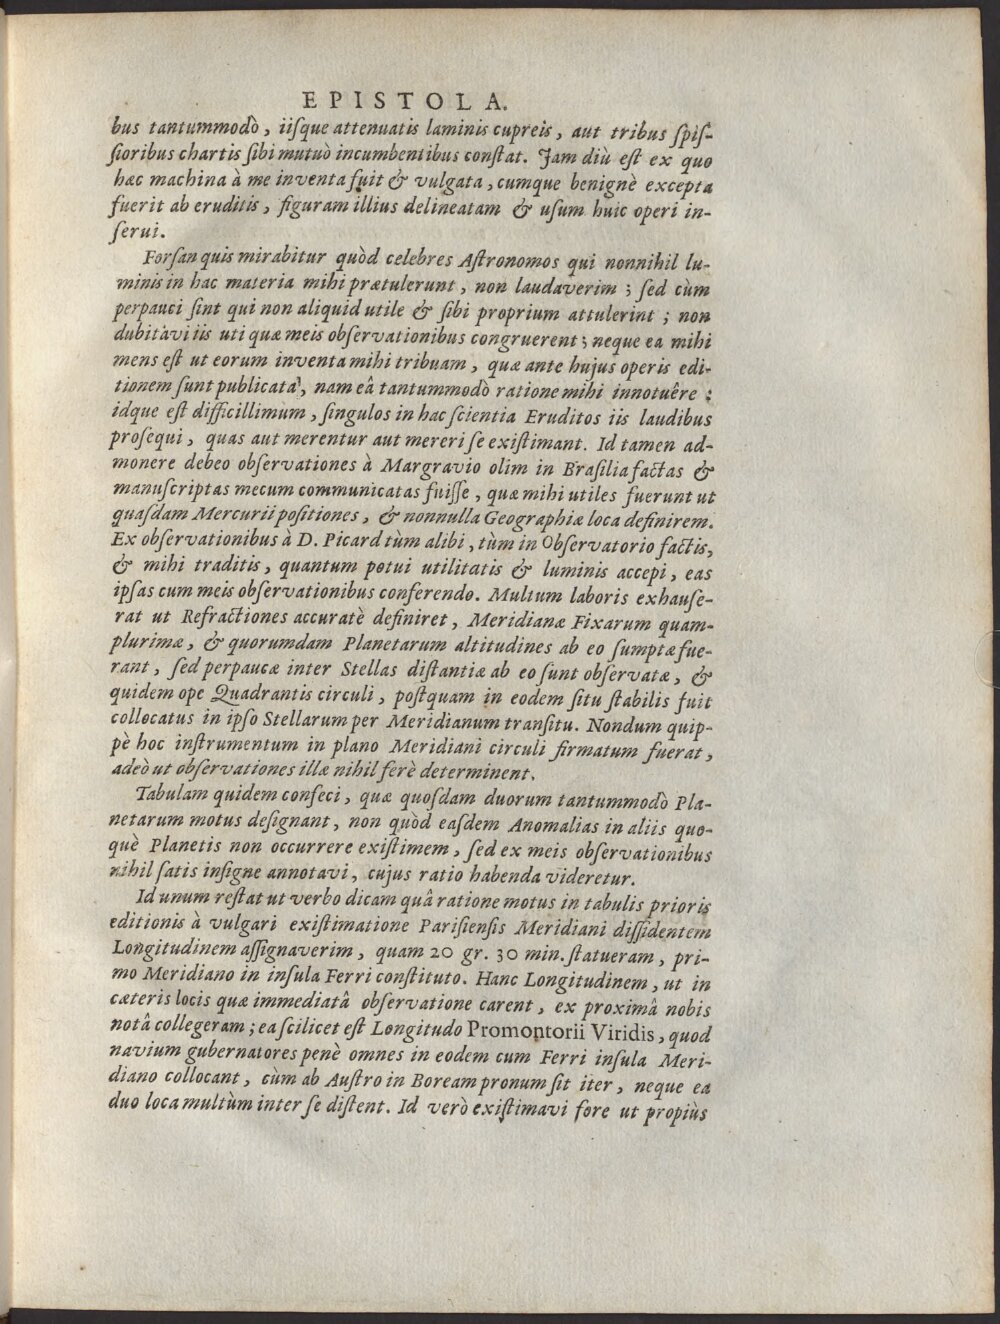 EPISTOLA.
bus tantummodò, iiſque attenuatis laminis cupreis, aut tribus ſpiſ-
ſioribus chartis ſibi mutuò incumbentibus conſtat. Jam diù eſt ex quo
hæc machina à me inventa fuit & vulgata, cumque benignè excepta
fuerit ab eruditis, figuram illius delineatam & uſum huic operi in-
ſerui.
Forſan quis mirabitur quòd celebres Aſtronomos qui nonnihil lu-
minis in hac materia mihi prætulerunt, non laudaverim; ſed cùm
perpauci ſint qui non aliquid utile & ſibi proprium attulerint; non
dubitavi iis uti quæ meis obſervationibus congruerent; neque ea mihi
mens eſt ut eorum inventa mihi tribuam, quæ ante hujus operis edi-
tionem ſunt publicata, nam eâ tantummodò ratione mihi innotuêre:
idque eſt difficillimum, ſingulos in hac ſcientia Eruditos iis laudibus
proſequi, quas aut merentur aut mereri ſe exiſtimant. Id tamen ad-
monere debeo obſervationes à Margravio olim in Braſilia factas &
manuſcriptas mecum communicatas fuiſſe, quæ mihi utiles fuerunt ut
quaſdam Mercurii poſitiones, & nonnulla Geographiæ loca definirem.
Ex obſervationibus à D. Picard tùm alibi, tùm in Obſervatorio factis,
& mihi traditis, quantum potui utilitatis & luminis accepi, eas
ipſas cum meis obſervationibus conferendo. Multum laboris exhauſe-
rat ut Refractiones accuratè definiret, Meridianæ Fixarum quam-
plurimæ, & quorumdam Planetarum altitudines ab eo ſumptæ fue-
rant, ſed perpaucæ inter Stellas diſtantiæ ab eo ſunt obſervatæ, &
quidem ope Quadrantis circuli, poſtquam in eodem ſitu ſtabilis fuit
collocatus in ipſo Stellarum per Meridianum tranſitu. Nondum quip-
pè hoc inſtrumentum in plano Meridiani circuli firmatum fuerat,
adeò ut obſervationes illæ nihil ferè determinent.
Tabulam quidem confeci, quæ quoſdam duorum tantummodò Pla-
netarum motus deſignant, non quòd eaſdem Anomalias in aliis quo-
què Planetis non occurrere exiſtimem, ſed ex meis obſervationibus
nihil ſatis inſigne annotavi, cujus ratio habenda videretur.
Id unum reſtat ut verbo dicam quâ ratione motus in tabulis prioris
editionis à vulgari exiſtimatione Pariſienſis Meridiani diſſidentem
Longitudinem aſſignaverim, quam 20 gr. 30 min. ſtatueram, pri-
mo Meridiano in inſula Ferri conſtituto. Hanc Longitudinem, ut in
cæteris locis quæ immediatâ obſervatione carent, ex proximâ nobis
notâ collegeram; ea ſcilicet eſt Longitudo Promontorii Viridis, quod
navium gubernatores penè omnes in eodem cum Ferri inſula Meri-
diano collocant, cùm ab Auſtro in Boream pronum ſit iter, neque ea
duo loca multùm inter ſe diſtent. Id verò exiſtimavi fore ut propiùs